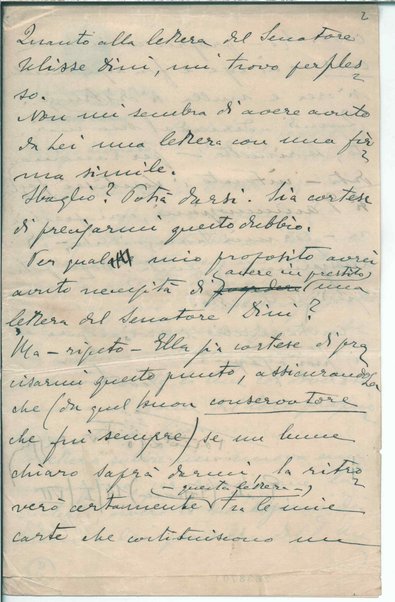 2
Quanto alla lettera del Senatore
Ulisse Dini, mi trovo perples=
so.
Non mi sembra di avere avuto
da Lei una lettera con una fir=
ma simile.
Sbaglio? Potrà darsi. Sia cortese
di precisarmi questo dubbio.
Per qual mio proposito avrei
(avere in prestito)
avuto necessità di una
lettera del Senatore Dini?
Ma – ripeto – Ella sia cortese di pre=
cisarmi questo punto, assicurandola
che (da quel buon conservatore
che fui sempre) se un lume
chiaro saprà darmi, la ritro=
– questa lettera –
verò certamente tra le mie
carte che costituiscono un